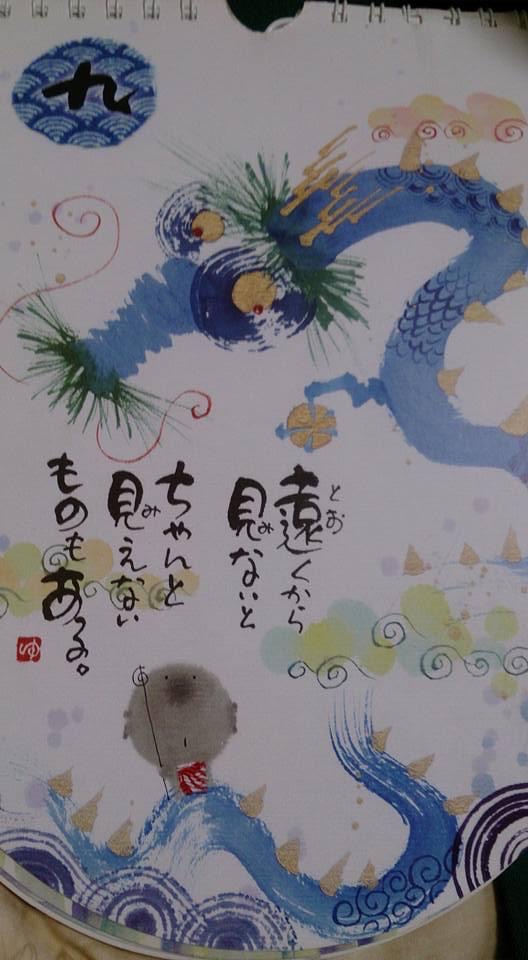 九
遠くから
見ないと
ちゃんと
見えない
ものも
ある。
ゆ